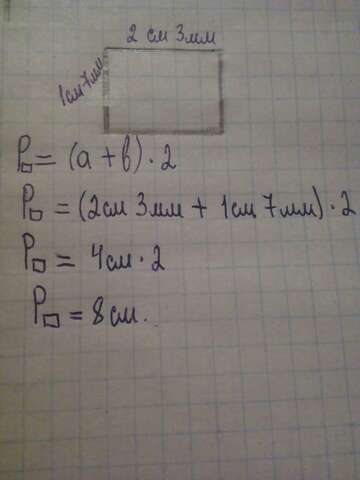 2 см 3мм
1см 7мм
P▭ = (a + b) · 2
P▭ = (2см 3мм + 1см 7мм) · 2
P▭ = 4см · 2
P▭ = 8см.